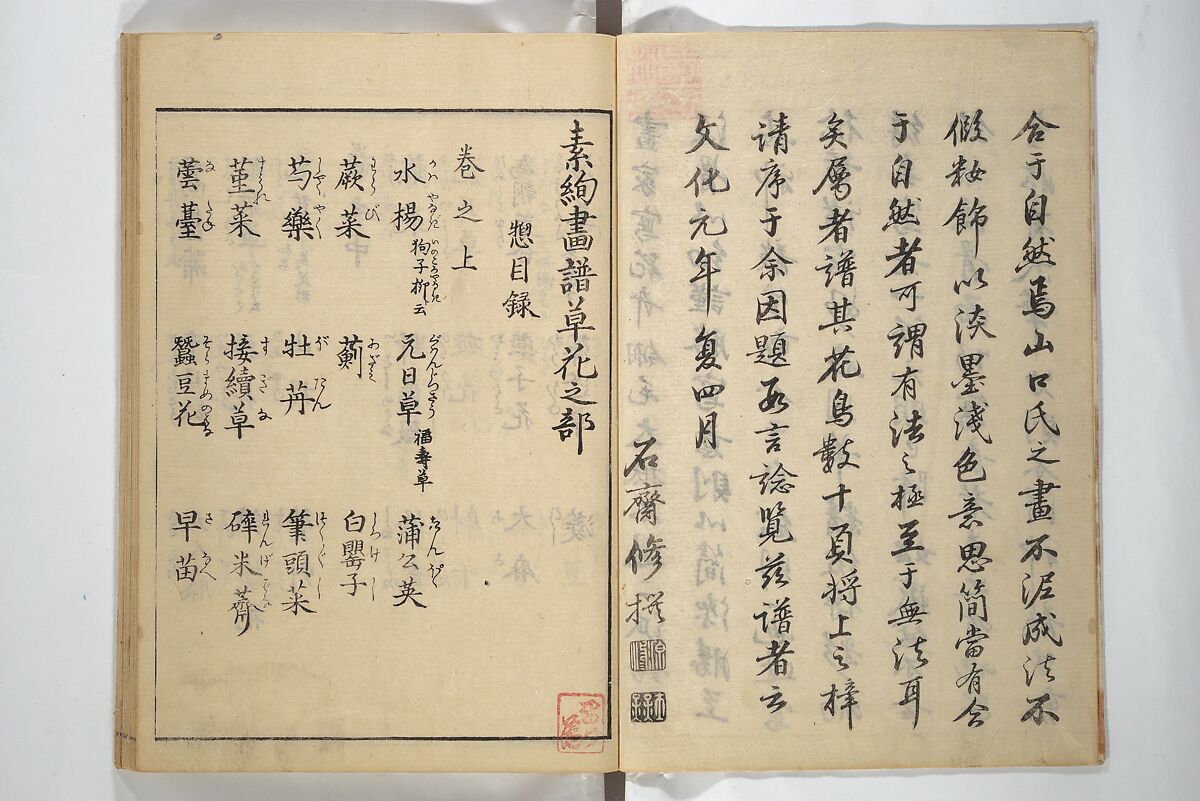 合于自然焉山口氏之畫不泥成法不
假粧飾以淡墨淺色意思簡當有合
于自然者可謂有法之極至于無法耳
矣屬者譜其花鳥數十頁將上之梓
請序于余因題數言諗覽茲譜者云
文化元年夏四月
石齋修撰
素絢畫譜草花之部
惣目録
卷之上
水楊 狗子柳云 元日草 福壽草 蒲公英
蕨菜 薊 白罌子
芍藥 牡丹 筆頭菜
菫菜 接續草 碎米薺
蕓薹 蠶豆花 早苗